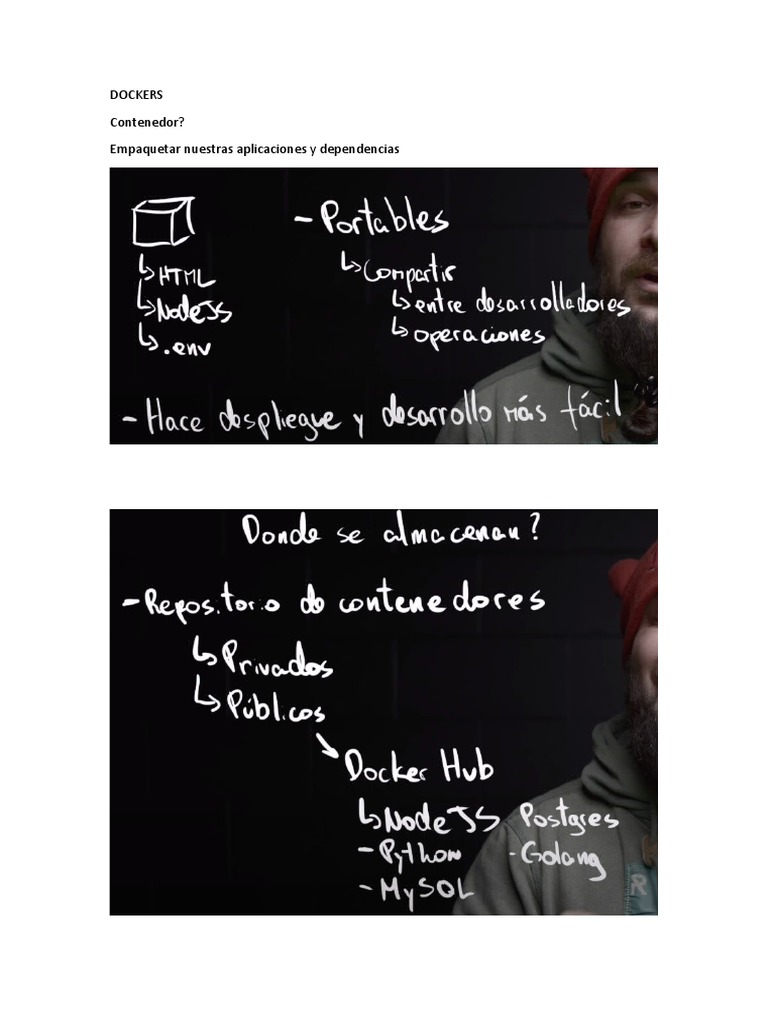 DOCKERS
Contenedor?
Empaquetar nuestras aplicaciones y dependencias
- Portables
↳ HTML
↳ NodeJS
↳ .env
↳ Compartir
↳ entre desarrolladores
↳ operaciones
- Hace despliegue y desarrollo más fácil
Donde se almacenan?
- Repositorio de contenedores
↳ Privados
↳ Públicos
Docker Hub
↳ NodeJS Postgres
- Python - Golang
- MySQL
R